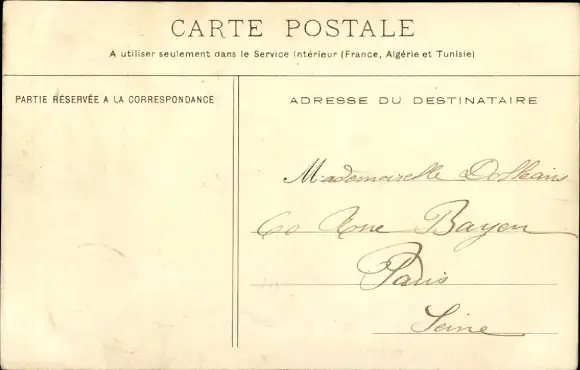 CARTE POSTALE
A utiliser seulement dans le Service Intérieur (France, Algérie et Tunisie)
PARTIE RÉSERVÉE A LA CORRESPONDANCE
ADRESSE DU DESTINATAIRE
Mademoiselle
60 Rue Bayen
Paris
Seine